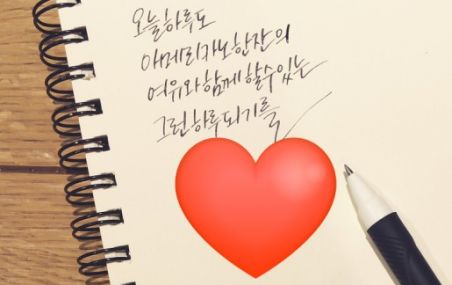 오늘하루도
아메리카노한잔의
여유와함께할수있는
그런하루되기를